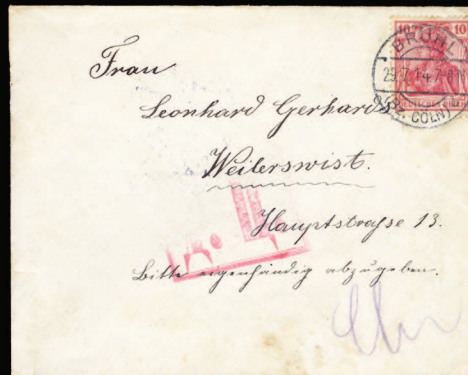 10 10
BRÜHL
29.7.14.7-8 N
DEUTSCHES REICH
(Bz. CÖLN)
Frau
Leonhard Gerhards
Weilerswist.
Hauptstraße 13.
Bitte eigenhändig abzugeben.